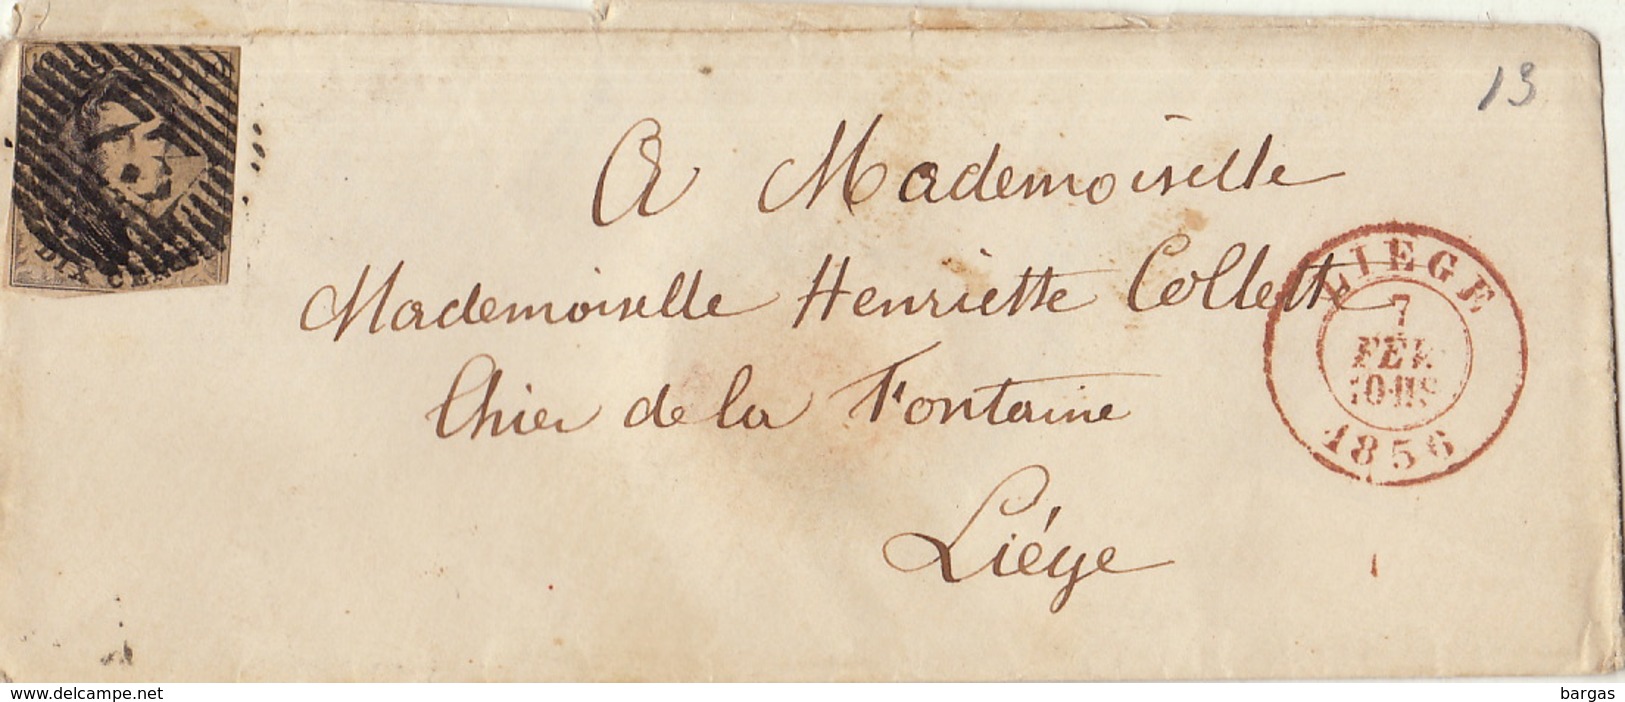 DIX CENT
13
A Mademoiselle
Mademoiselle Henriette Collette
Chier de la Fontaine
Liége
LIEGE
7
FEV.
10-HS
1856
www.delcampe.net
bargas